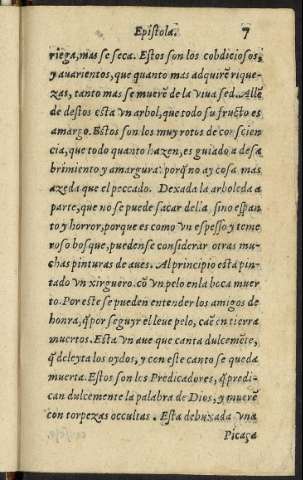 Epistola. 7
riega, mas se seca. Estos son los cobdiciosos,
y auarientos, que quanto mas adquirẽ rique-
zas, tanto mas se muerẽ de la viua sed. Allẽ
de destos esta vn arbol, que todo su fructo es
amargo. Estos son los muy rotos de conscien
cia, que todo quanto hazen, es guiado a desa
brimiento y amargura: porq̃ no ay cosa mas
azeda que el peccado. Dexada la arboleda a
parte, que no se puede sacar della sino espan
to y horror, porque es como vn espesso y teme
roso bosque, puedense considerar otras mu-
chas pinturas de aues. Al principio esta pin
tado vn xirguero, cõ vn pelo en la boca muer
to. Por este se pueden entender los amigos de
honra, q̃ por seguyr el leue pelo, caẽ en tierra
muertos. Esta vn aue que canta dulcemẽte,
q̃ deleyta los oydos, y con este canto se queda
muerta. Estos son los Predicadores, q̃ predi-
can dulcemente la palabra de Dios, y muerẽ
con torpezas occultas. Esta debuxada vna
Picaça